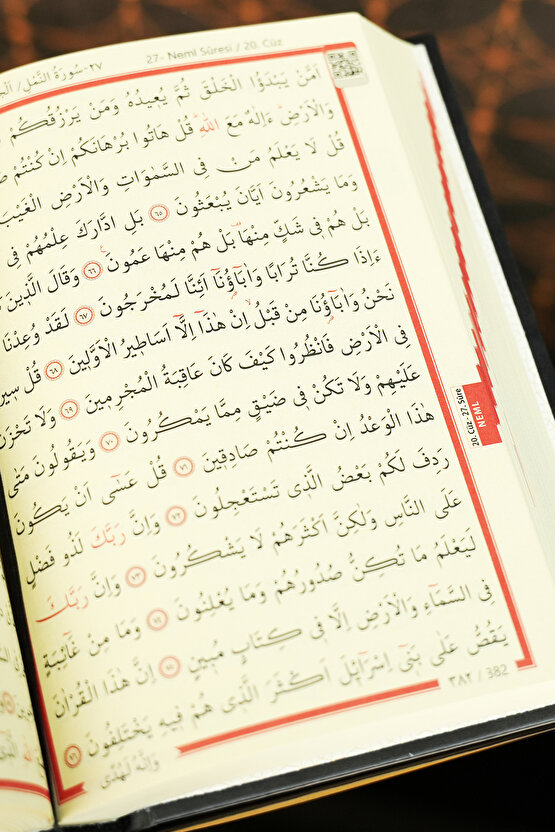 27- Neml Sûresi / 20. Cüz
٢٧-سُورَةُ النَّمْلِ/
اَمَّنْ يَبْدَؤُا الْخَلْقَ ثُمَّ يُعِيدُهُ وَمَنْ يَرْزُقُكُمْ
وَالْاَرْضِ ءَاِلٰهٌ مَعَ اللّٰهِ قُلْ هَاتُوا بُرْهَانَكُمْ اِنْ كُنْتُمْ
قُلْ لَا يَعْلَمُ مَنْ فِي السَّمٰوَاتِ وَالْاَرْضِ الْغَيْبَ
وَمَا يَشْعُرُونَ اَيَّانَ يُبْعَثُونَ ٦٥ بَلِ ادَّارَكَ عِلْمُهُمْ فِي
بَلْ هُمْ فِي شَكٍّ مِنْهَا بَلْ هُمْ مِنْهَا عَمُونَ ٦٦ وَقَالَ الَّذِينَ
ءَاِذَا كُنَّا تُرَابًا وَاٰبَٓاؤُ۬نَٓا اَئِنَّا لَمُخْرَجُونَ ٦٧ لَقَدْ وُعِدْنَا
نَحْنُ وَاٰبَٓاؤُ۬نَا مِنْ قَبْلُ اِنْ هٰذَٓا اِلَّٓا اَسَاطِيرُ الْاَوَّلِينَ ٦٨ قُلْ سِيرُوا
فِي الْاَرْضِ فَانْظُرُوا كَيْفَ كَانَ عَاقِبَةُ الْمُجْرِمِينَ ٦٩ وَلَا تَحْزَنْ
عَلَيْهِمْ وَلَا تَكُنْ فِي ضَيْقٍ مِمَّا يَمْكُرُونَ ٧٠ وَيَقُولُونَ مَتٰى
هٰذَا الْوَعْدُ اِنْ كُنْتُمْ صَادِقِينَ ٧١ قُلْ عَسٰٓى اَنْ يَكُونَ
رَدِفَ لَكُمْ بَعْضُ الَّذِي تَسْتَعْجِلُونَ ٧٢ وَاِنَّ رَبَّكَ لَذُو فَضْلٍ
عَلَى النَّاسِ وَلٰكِنَّ اَكْثَرَهُمْ لَا يَشْكُرُونَ ٧٣ وَاِنَّ رَبَّكَ
لَيَعْلَمُ مَا تُكِنُّ صُدُورُهُمْ وَمَا يُعْلِنُونَ ٧٤ وَمَا مِنْ غَٓائِبَةٍ
فِي السَّمَٓاءِ وَالْاَرْضِ اِلَّا فِي كِتَابٍ مُبِينٍ ٧٥ اِنَّ هٰذَا الْقُرْاٰنَ
يَقُصُّ عَلٰى بَنِٓي اِسْرَٓائِلَ اَكْثَرَ الَّذِي هُمْ فِيهِ يَخْتَلِفُونَ ٧٦
وَاِنَّهُ لَهُدًى
٣٨٢ / 382
20. Cüz - 27. Sûre
NEML